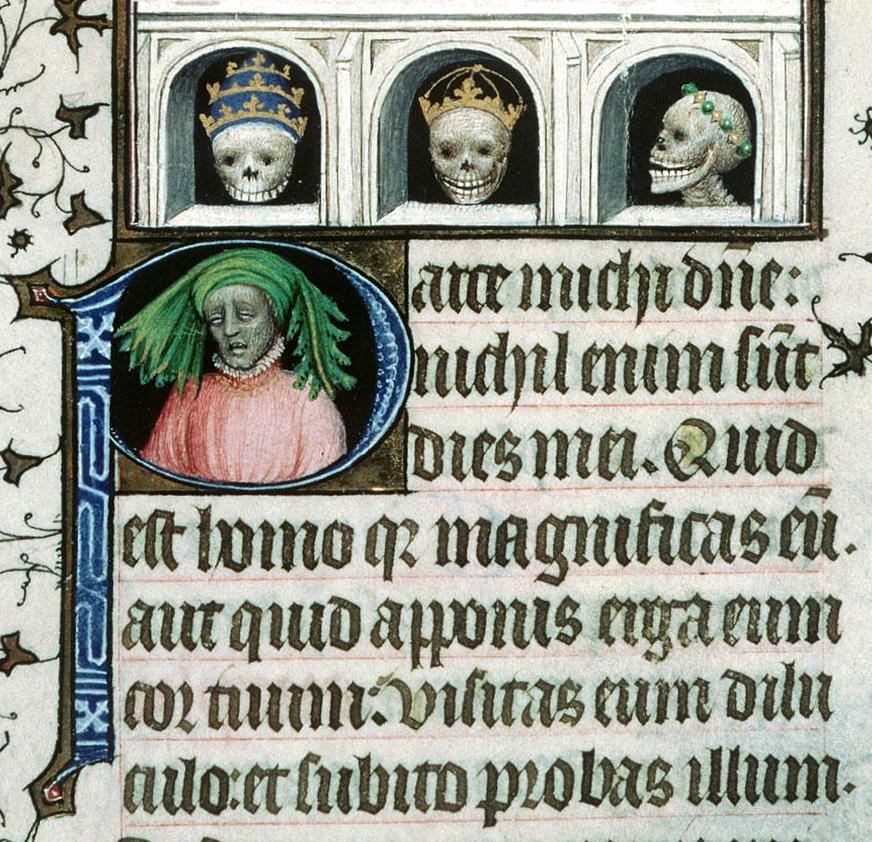 Parce michi dñe:
nichil enim sũt
dies mei. Quid
est homo qꝛ magnificas eũ.
aut quid apponis erga eum
cor tuum: visitas eum dilu
culo: et subito probas illum.